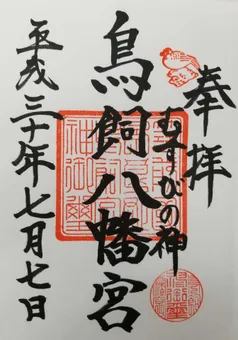 奉拝
むすびの神
鳥飼八幡宮
平成三十年七月七日